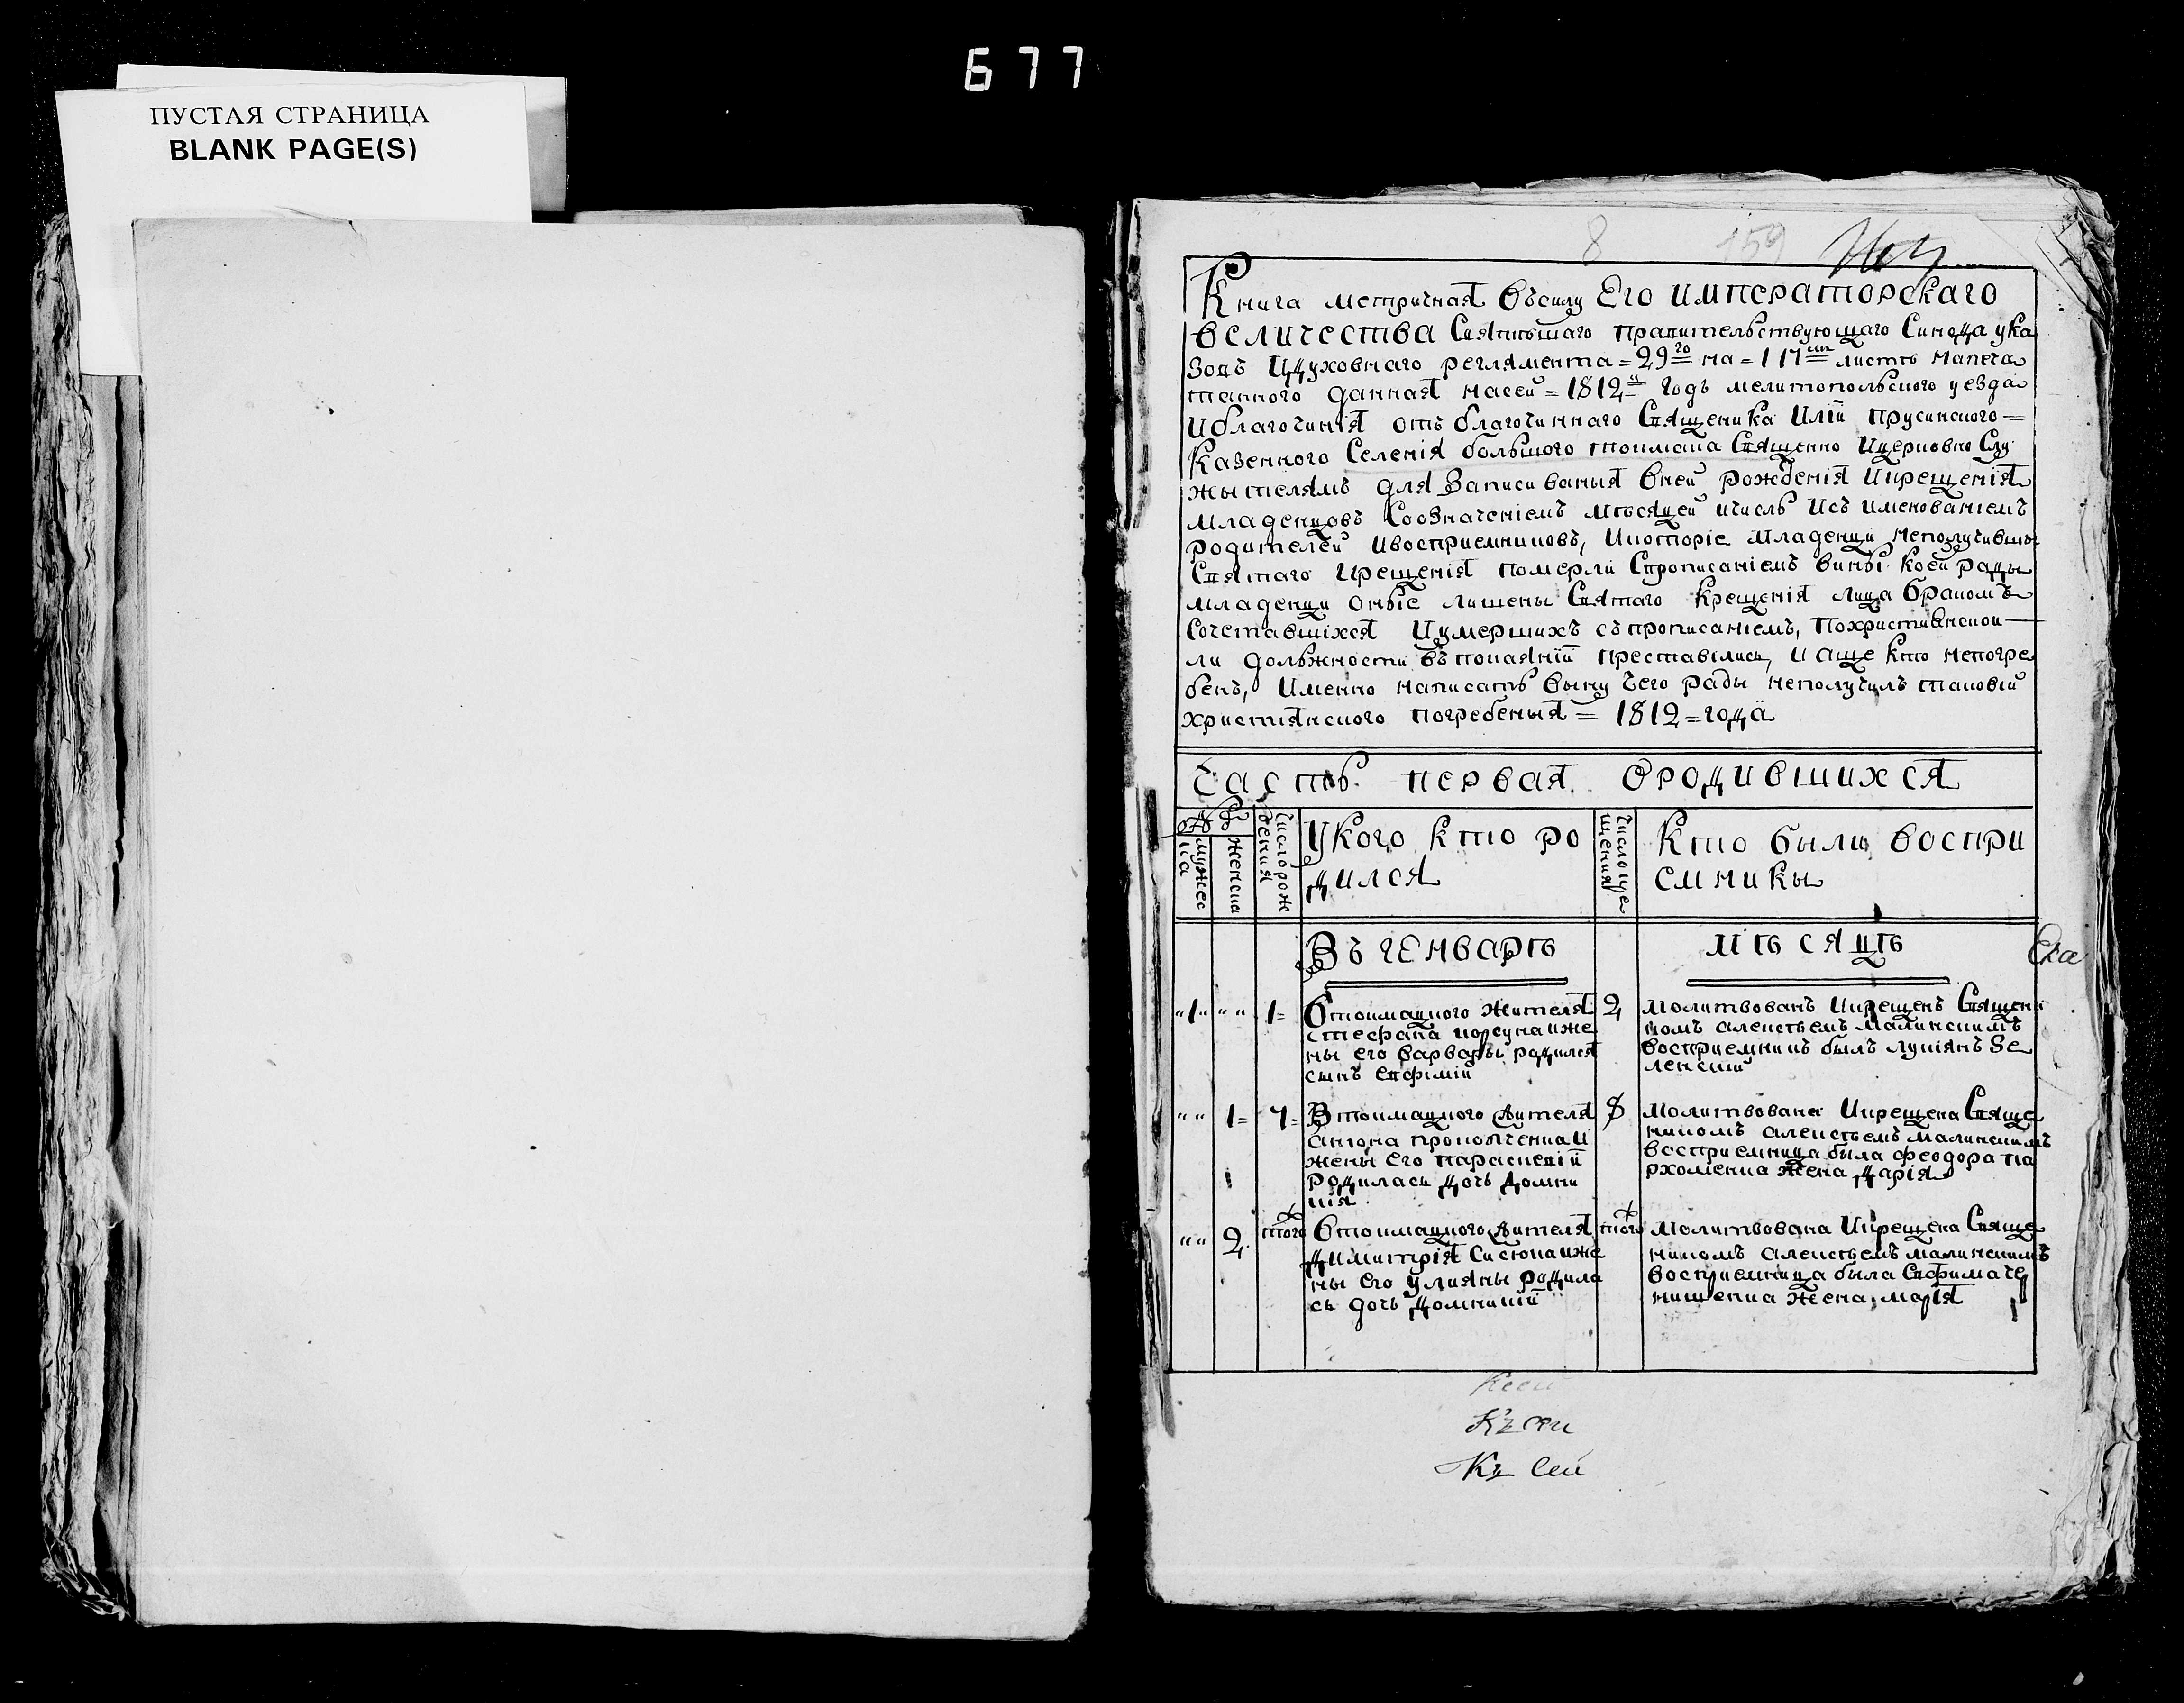 677
ПУСТАЯ СТРАНИЦА
BLANK PAGE(S)
8 159
Книга метричная Въсилу Его императорскаго
величества Святѣйшаго правительствующаго Синода ука
зовъ Идуховнаго регламента = 29го на = 117мъ листѣ напеча
таннаго данная насей = 1812й годъ мелитопольского уезда
Иблагочинія отъ благочиннаго Священика Иліи прусинского =
Казенного Селенія большого токмака Священно Ицерковно Слу
жытелямъ для Записиваныя вней рожденія Икрещенія
младенцовъ Соозначеніемъ мѣсяцей ичислъ Исъ именованіемъ
родителей ивосприемниковъ, Икоторіе младенци неполучивши
Святаго крещенія померли Спрописаніемъ вины коей рады
младенци оныіе лишены Святаго крещенія лица бракомъ
Сочетавшіхся Иумершихъ съпрописаніемъ, Похристиянской
ли должности въпокаяніи преставілись, и аще кто непогре
бенъ, Именно написать выну чего рады неполучилъ таковіи
християнского погребеныя = 1812 = года
Часть первая ородившихся
мужес
ка
женска
Числорож
дения
Укого кто ро
дился
Числокре
щения
Кто были воспри
емники
Въ генварѣ мѣсяцѣ
"1" "" 1= Втокмацкого жителя
Стефана корсуна иже
ны его варвары родился
сынъ евфимій
2 молитвованъ Икрещенъ Священи
комъ алексѣемъ малинскимъ
восприемникъ былъ лукіянъ Зе
ленский
"" 1= 7= Втокмацкого жителя
антона прокопченка И
жены его параскевіи
родилась дочь домни
кія
8 молитвована Икрещена Свяще
никомъ алексѣемъ малинскимъ
восприемница была феодора па
рхоменка жена дарія
"" 2 того Втокмацкого жителя
Димитрія Сисюпа иже
ны его улияны родила
сь дочь домникіи
того молитвована Икрещена Свяще
никомъ алексѣемъ малинскимъ
восприемница была Евфима че
нишенка жена марія
Къ сей